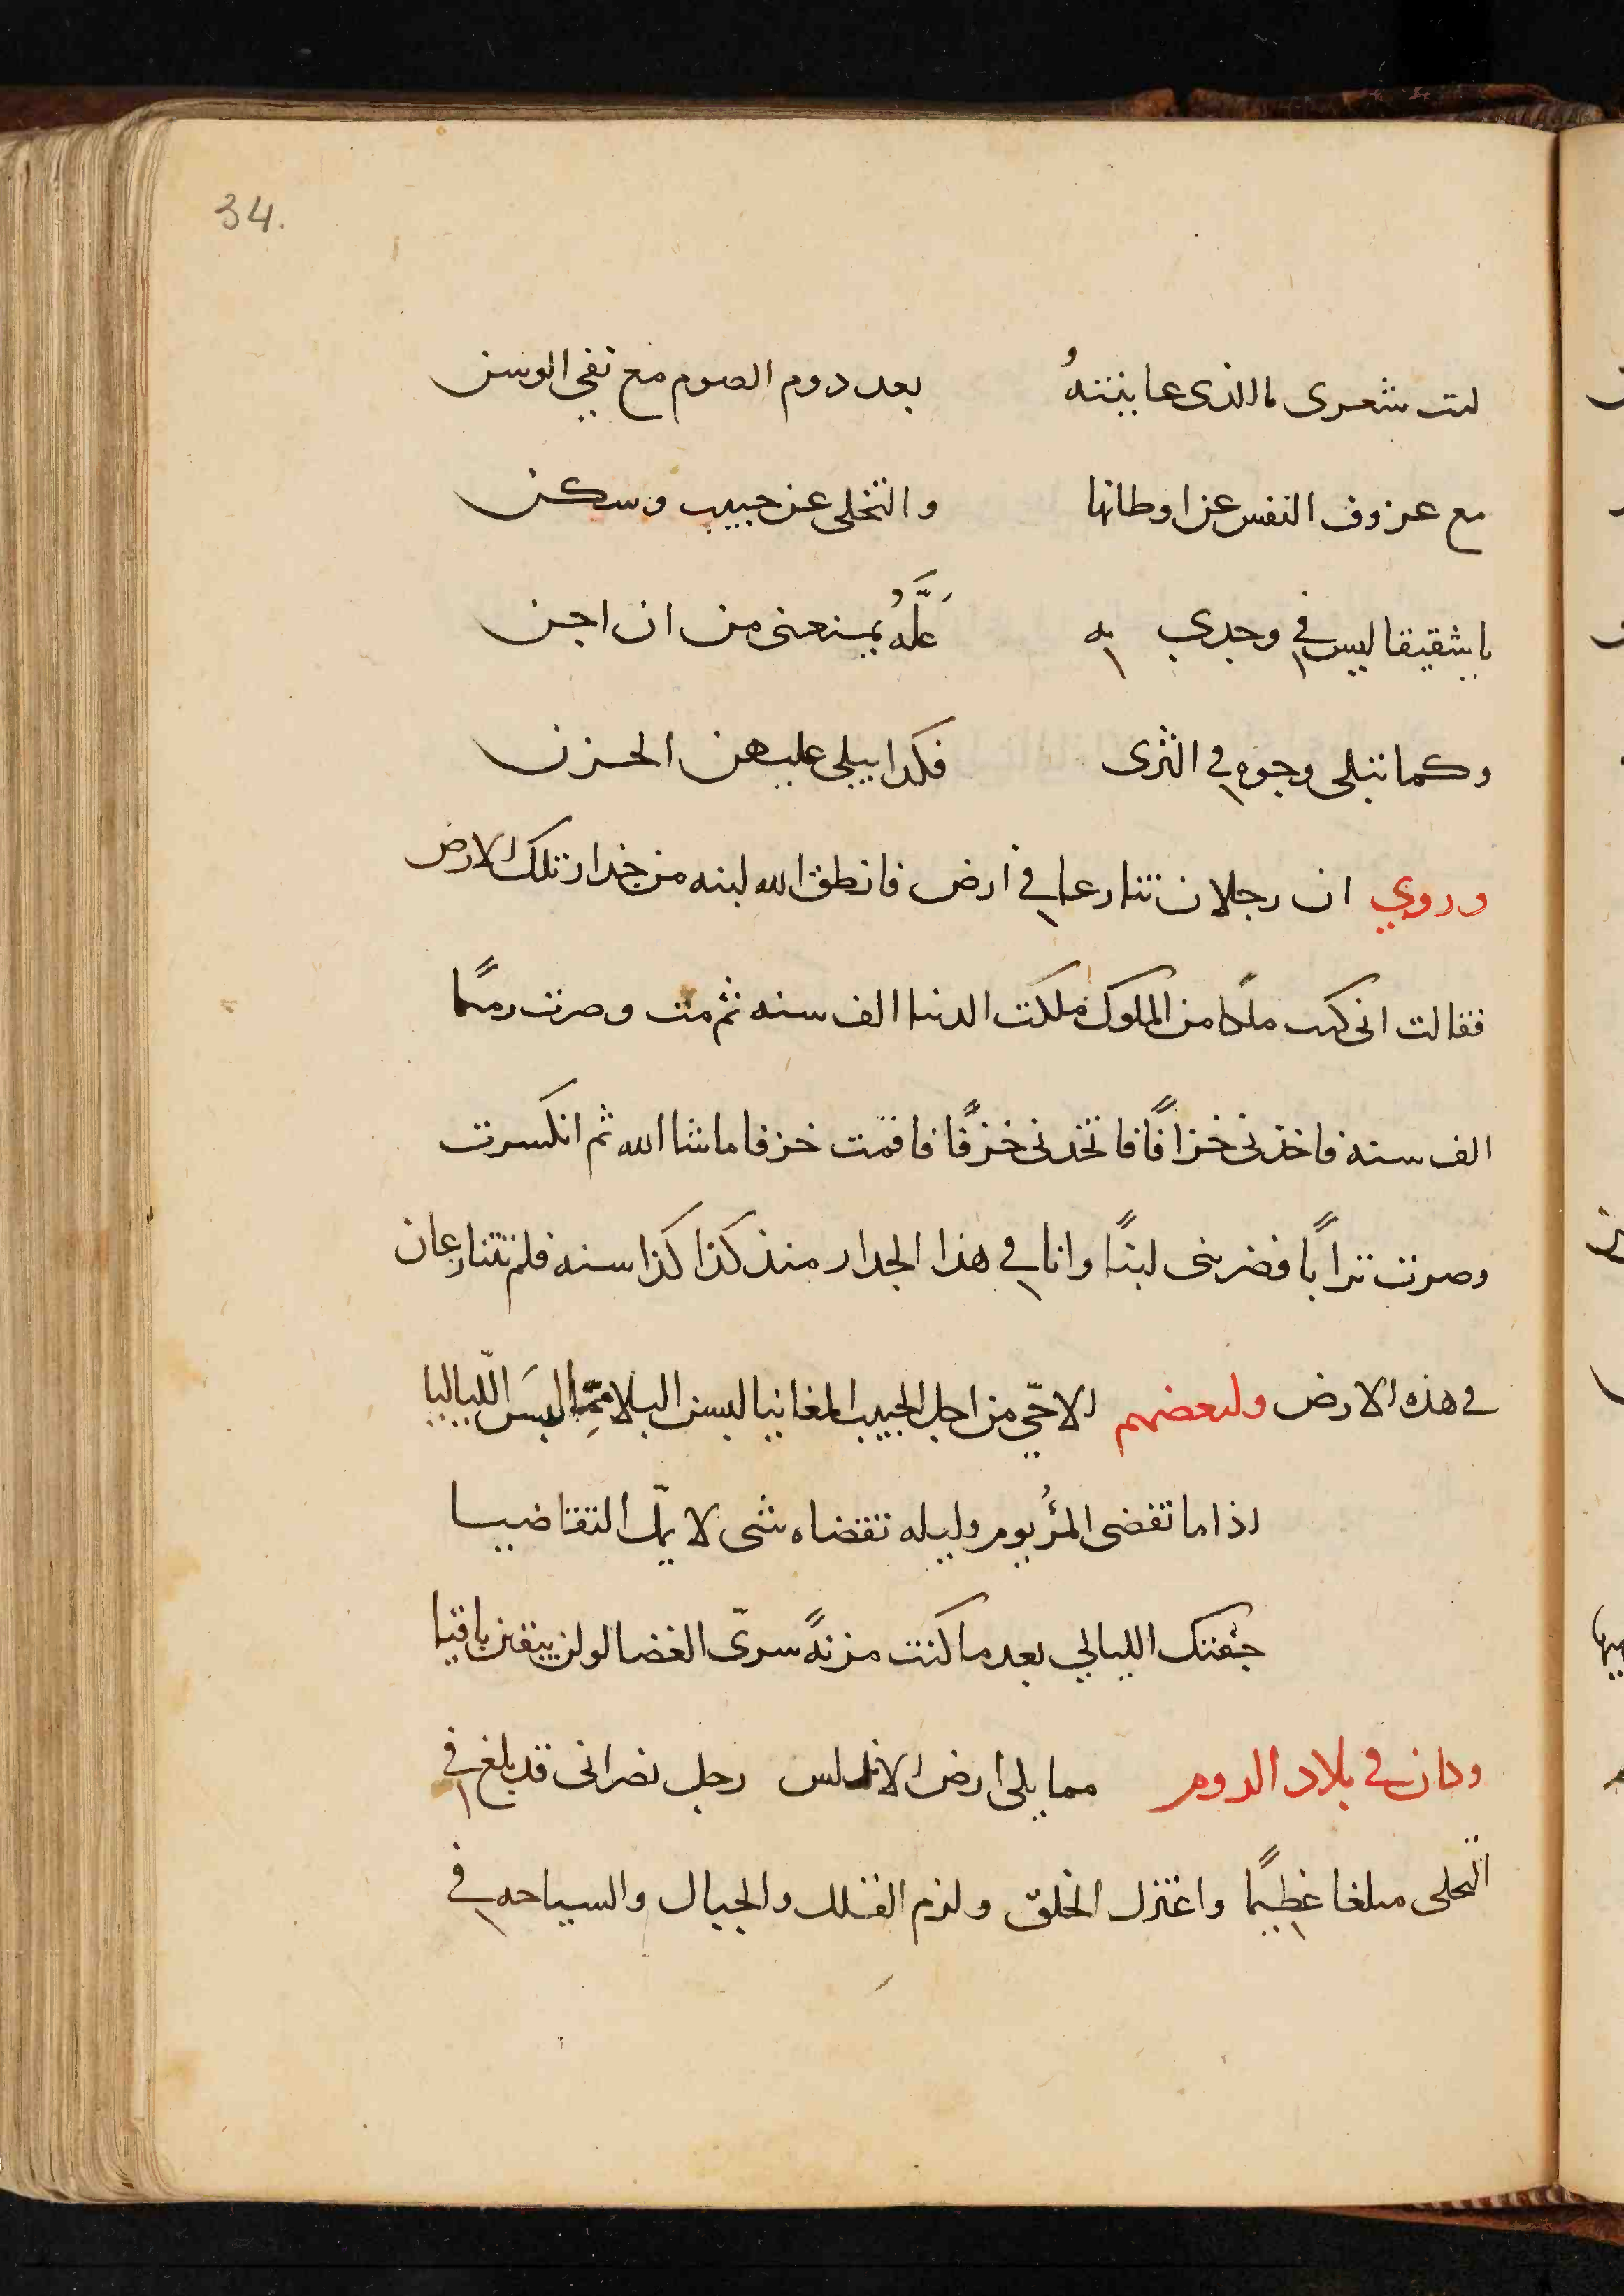 34.
ليت شعرى ماالذى عاينته بعد دوم الصوم مع نفي الوسن
مع عزوف النفس عن اوطانها والتخلى عن حبيب وسكن
ياشقيقا ليس في وجدي به علة يمنعنى من ان اجن
وكما تبلى وجوه في الثرى فكدا يبلى عليهن الحزن
وروي ان رجلان تنارعا في ارض فانطق الله لبنه من جدار تلك الارض
فقالت انى كنت ملكا من الملوك ملكت الدنيا الف سنه ثم مت وصرت رميما
الف سنه فاخذنى خزافا فاتخدنى خزفا فاقمت خزفا ماشا الله ثم انكسرت
وصرت ترابا فضربنى لبنا وانا في هذا الجدار منذ كذا كذا سنه فلم تتنارعان
في هذه الارض ولبعضهم الا حي من اجل الحبيب المغانيا لبسن البلا مما لبسن اللياليا
اذا ما تقضى المرء يوم وليله تقضاه شى لا يمل التقاضيا
جفتك الليالي بعد ما كنت مزنة سرى الغضا لو لن يبقين باقيا
وكان في بلاد الروم مما يلى ارض الاندلس رجل نصرانى قد بلغ في
التخلى مبلغا عظيما واعتزل الخلق ولزم القلل والجبال والسياحه في